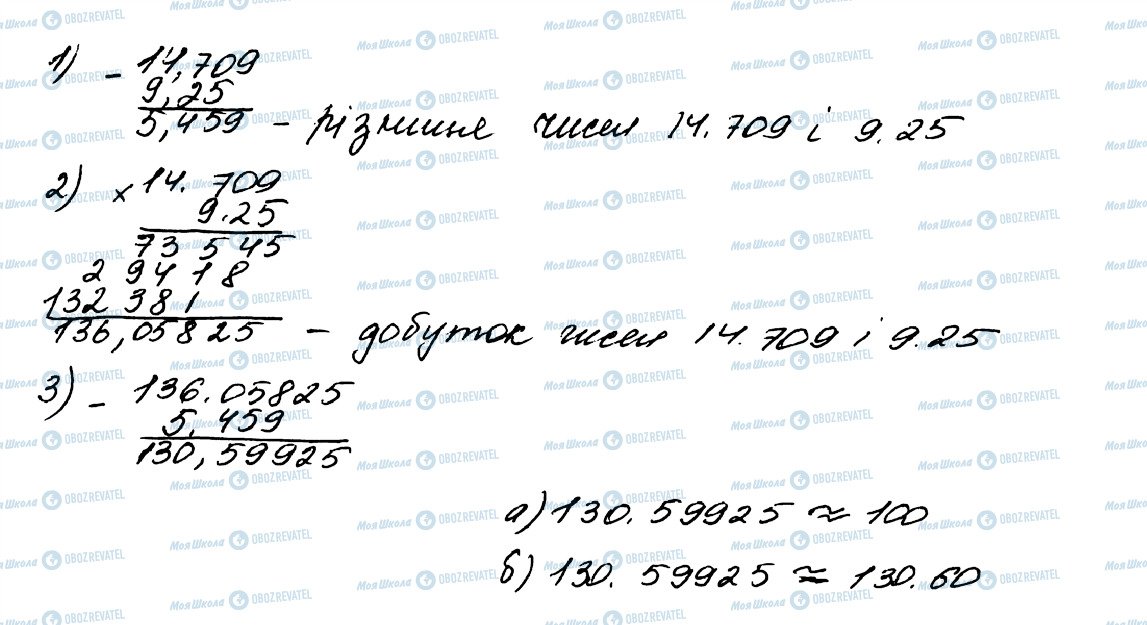 1) - 14,709
9,25
5,459 - різниця чисел 14.709 і 9.25
2) x 14.709
9.25
73 5 45
2 94 18
132 381
136,05825 - добуток чисел 14.709 і 9.25
3) - 136.05825
5,459
130,59925
а) 130.59925 ≈ 100
б) 130.59925 ≈ 130.60